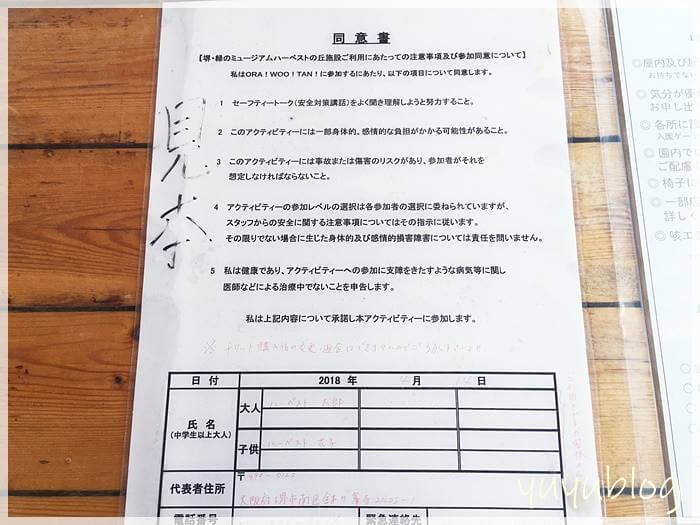 同意書
【堺・緑のミュージアムハーベストの丘施設ご利用にあたっての注意事項及び参加同意について】
私はORA！WOO！TAN！に参加するにあたり、以下の項目について同意します。
1 セーフティートーク(安全対策講話)をよく聞き理解しようと努力すること。
2 このアクティビティーには一部身体的、感情的な負担がかかる可能性があること。
3 このアクティビティーには事故または傷害のリスクがあり、参加者がそれを
想定しなければならないこと。
4 アクティビティーの参加レベルの選択は各参加者の選択に委ねられていますが、
スタッフからの安全に関する注意事項についてはその指示に従います。
その限りでない場合に生じた身体的及び感情的損害障害については責任を問いません。
5 私は健康であり、アクティビティーへの参加に支障をきたすような病気等に関し
医師などによる治療中でないことを申告します。
私は上記内容について承諾し本アクティビティーに参加します。
見本
※ チケット購入後の変更・返金は
日付 2018 年 月 日
氏名
(中学生以上大人)
大人 ハーベスト 太郎
子供 ハーベスト 花子
代表者住所
〒590-0122
大阪府堺市南区
電話番号 緊急連絡先
◎屋内及び
お持ちでない
◎気分が優
お申し出
◎各所に
入園ゲー
◎園内で
ご配慮
◎椅子に
◎一部
詳しく
◎咳エ
yuyublog